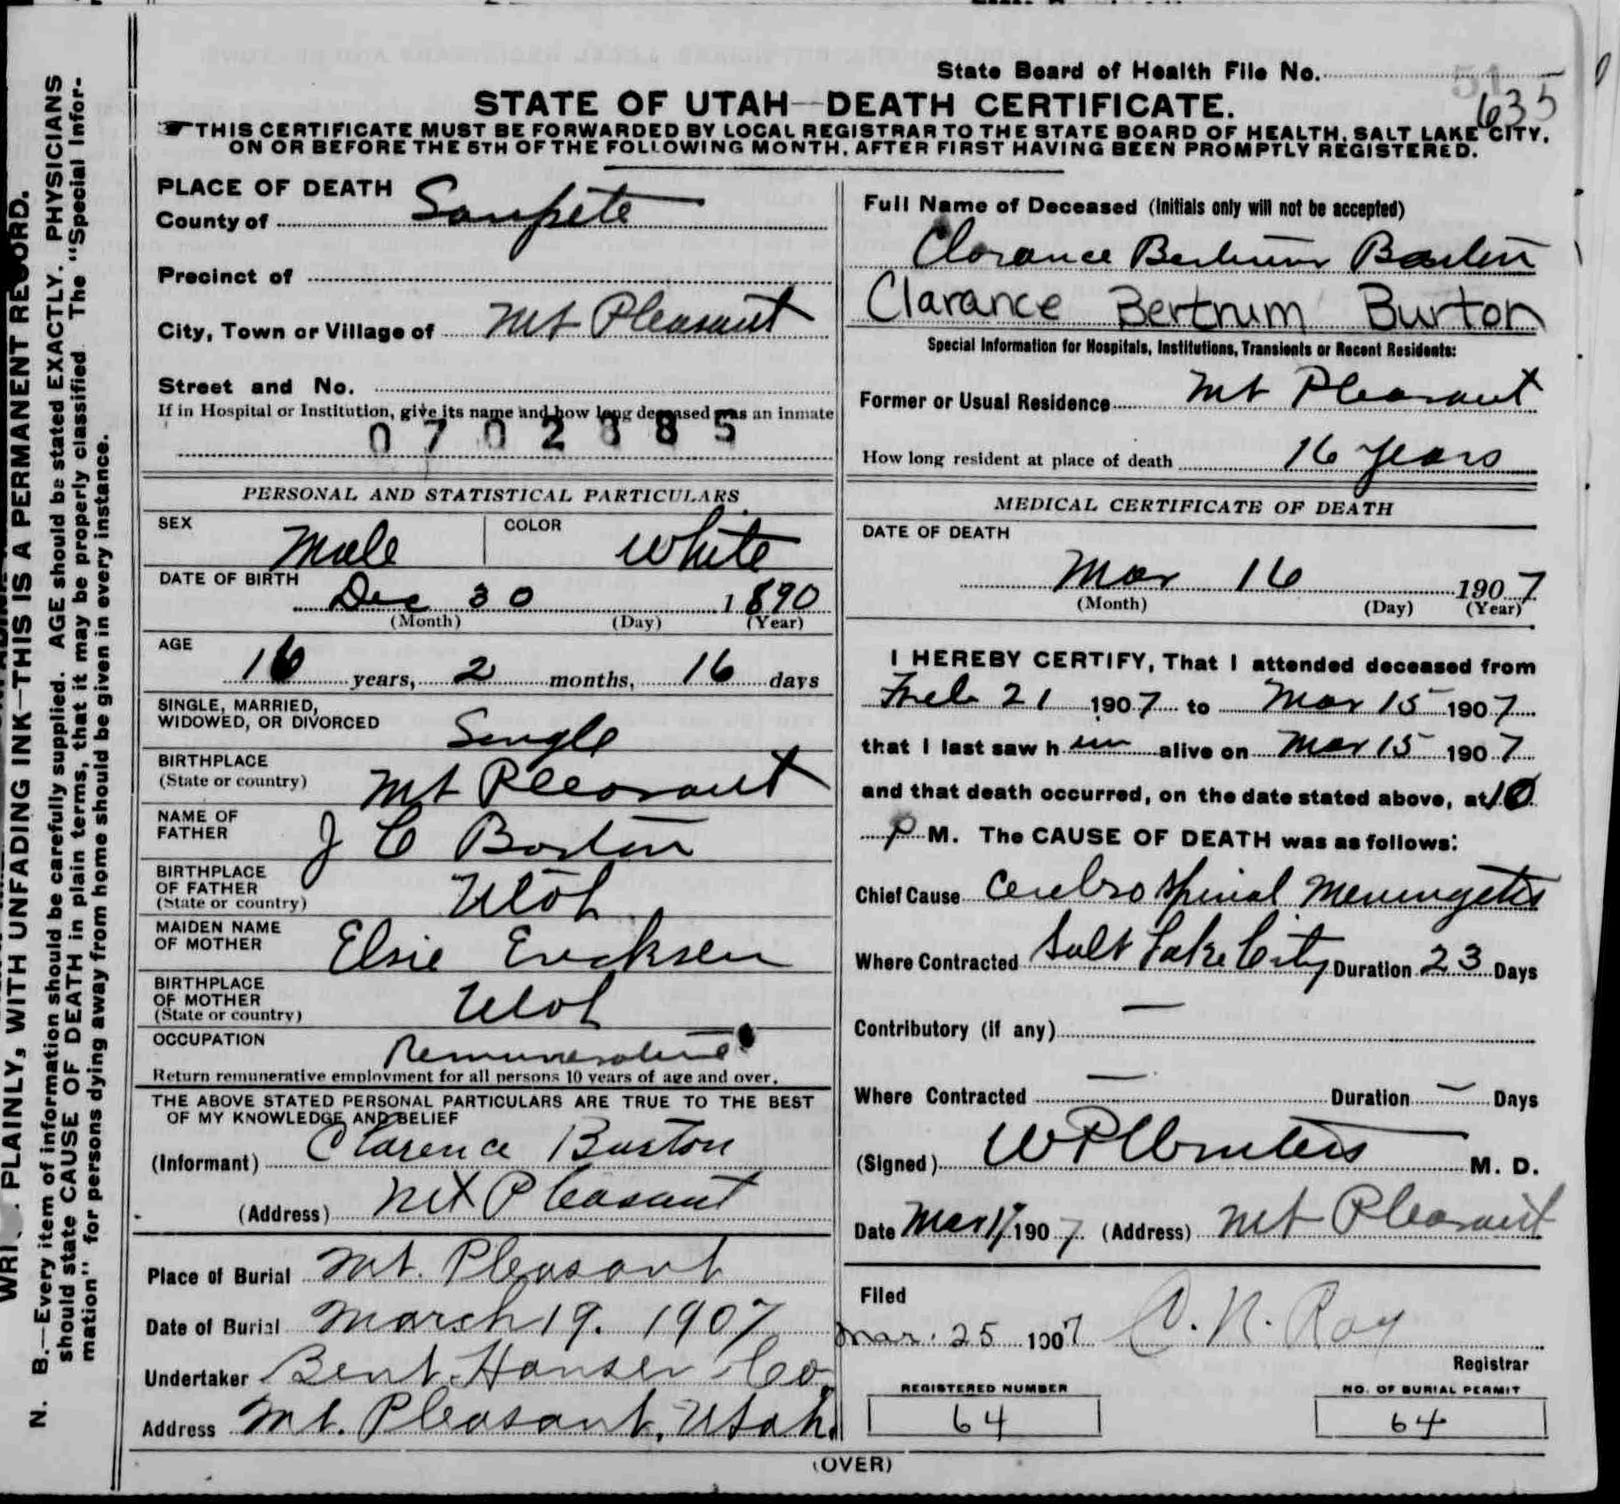 State Board of Health File No. 51
635
STATE OF UTAH—DEATH CERTIFICATE.
THIS CERTIFICATE MUST BE FORWARDED BY LOCAL REGISTRAR TO THE STATE BOARD OF HEALTH, SALT LAKE CITY,
ON OR BEFORE THE 5TH OF THE FOLLOWING MONTH, AFTER FIRST HAVING BEEN PROMPTLY REGISTERED.
PLACE OF DEATH
County of Sanpete
Precinct of
City, Town or Village of Mt Pleasant
Street and No.
If in Hospital or Institution, give its name and how long deceased was an inmate
0702885
PERSONAL AND STATISTICAL PARTICULARS
SEX Male COLOR White
DATE OF BIRTH
Dec 30 1890
(Month) (Day) (Year)
AGE
16 years, 2 months, 16 days
SINGLE, MARRIED,
WIDOWED, OR DIVORCED Single
BIRTHPLACE
(State or country) Mt Pleasant
NAME OF
FATHER J C Borton
BIRTHPLACE
OF FATHER
(State or country) Utah
MAIDEN NAME
OF MOTHER Elsie Ericksen
BIRTHPLACE
OF MOTHER
(State or country) Utah
OCCUPATION Remunerative
Return remunerative employment for all persons 10 years of age and over.
THE ABOVE STATED PERSONAL PARTICULARS ARE TRUE TO THE BEST
OF MY KNOWLEDGE AND BELIEF
(Informant) Clarence Burton
(Address) Mt Pleasant
Place of Burial Mt. Pleasant
Date of Burial March 19. 1907
Undertaker Bent Hansen Co
Address Mt. Pleasant, Utah.
Full Name of Deceased (Initials only will not be accepted)
Clarance Bertrum Borton
Clarance Bertrum Burton
Special Information for Hospitals, Institutions, Transients or Recent Residents:
Former or Usual Residence Mt Pleasant
How long resident at place of death 16 years
MEDICAL CERTIFICATE OF DEATH
DATE OF DEATH
Mar 16 1907
(Month) (Day) (Year)
I HEREBY CERTIFY, That I attended deceased from
Feb 21 1907 to Mar 15 1907
that I last saw h im alive on Mar 15 1907
and that death occurred, on the date stated above, at 10
P M. The CAUSE OF DEATH was as follows:
Chief Cause Cerebro Spinal Meningetis
Where Contracted Salt Lake City Duration 23 Days
Contributory (if any) —
Where Contracted — Duration — Days
(Signed) W P Winters M. D.
Date Mar 17 1907. (Address) Mt Pleasant
Filed
Mar. 25 1907 C. N. Ray
Registrar
REGISTERED NUMBER
64
NO. OF BURIAL PERMIT
64
(OVER)
WRI PLAINLY, WITH UNFADING INK—THIS IS A PERMANENT RECORD.
N. B.—Every item of information should be carefully supplied. AGE should be stated EXACTLY. PHYSICIANS
should state CAUSE OF DEATH in plain terms, that it may be properly classified. The "Special Infor-
mation" for persons dying away from home should be given in every instance.